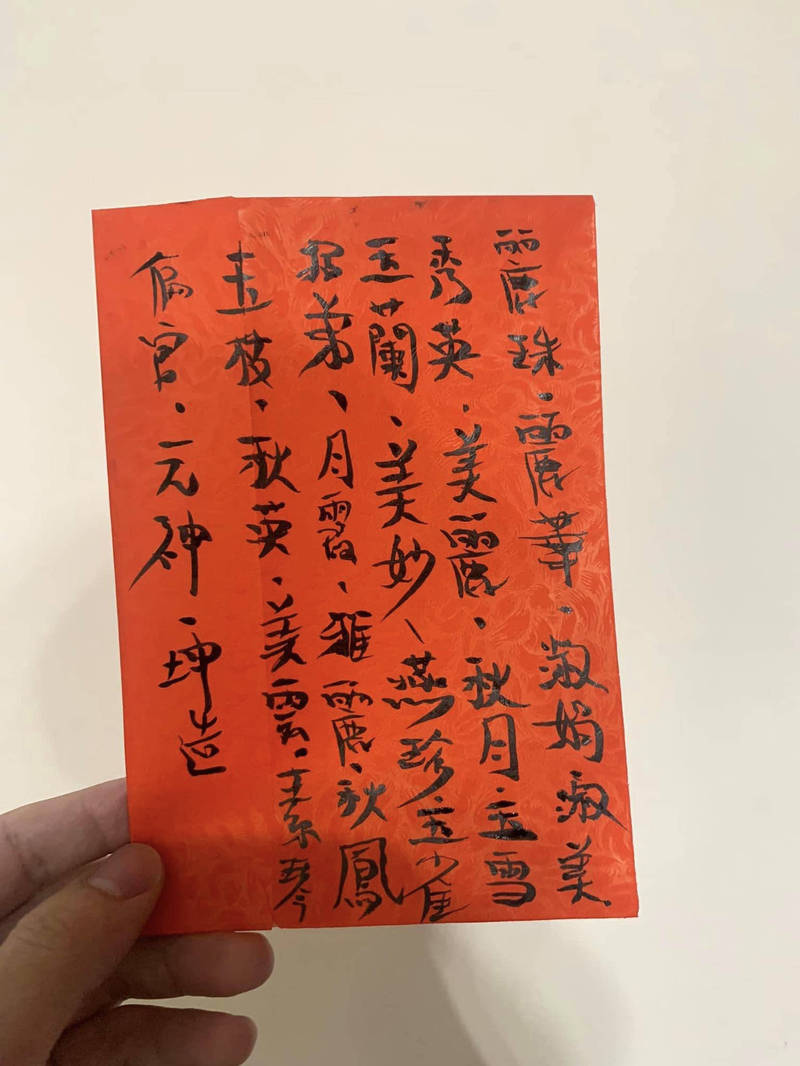 麗珠.麗華.淑娟淑美.
秀英.美麗、秋月.玉雪
玉蘭、美妙、燕珍.玉雀
招弟、月霞、雅麗.秋鳳
玉枝.秋英.美雲.素琴
偏官.元神.坤造